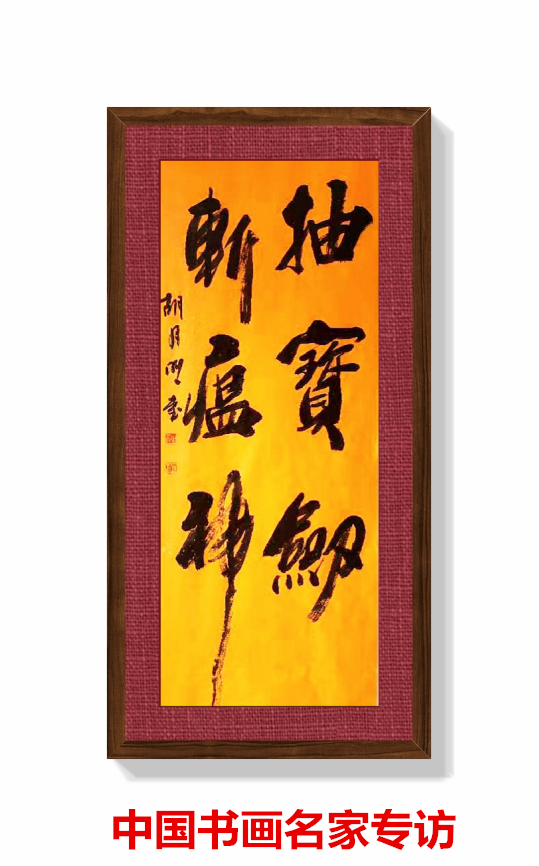 抽寶劍
斬瘟神
胡月明書
中国书画名家专访